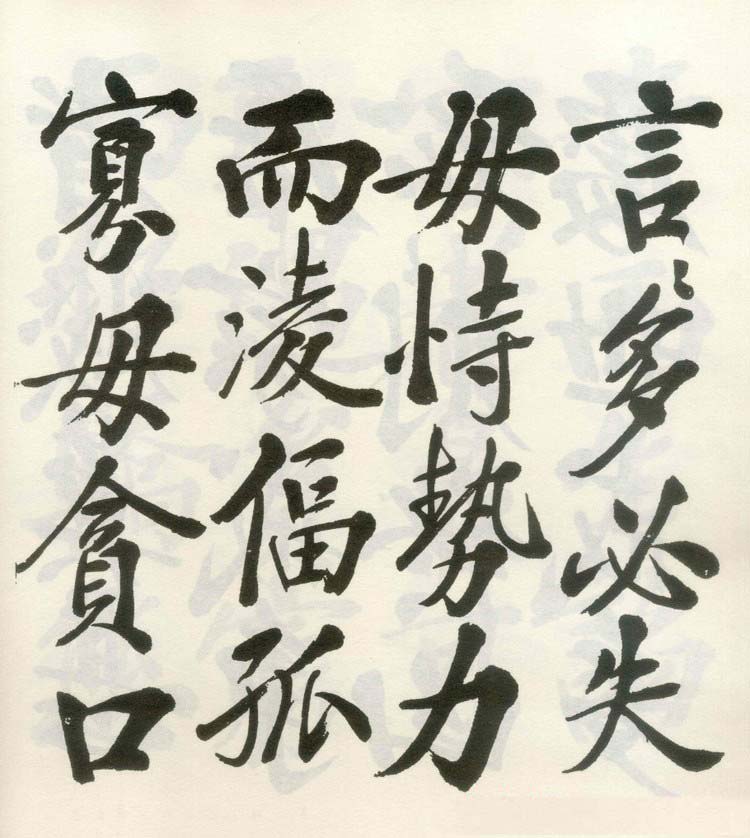 言〻多必失
毋恃勢力
而凌偪孤
寡毋貪口